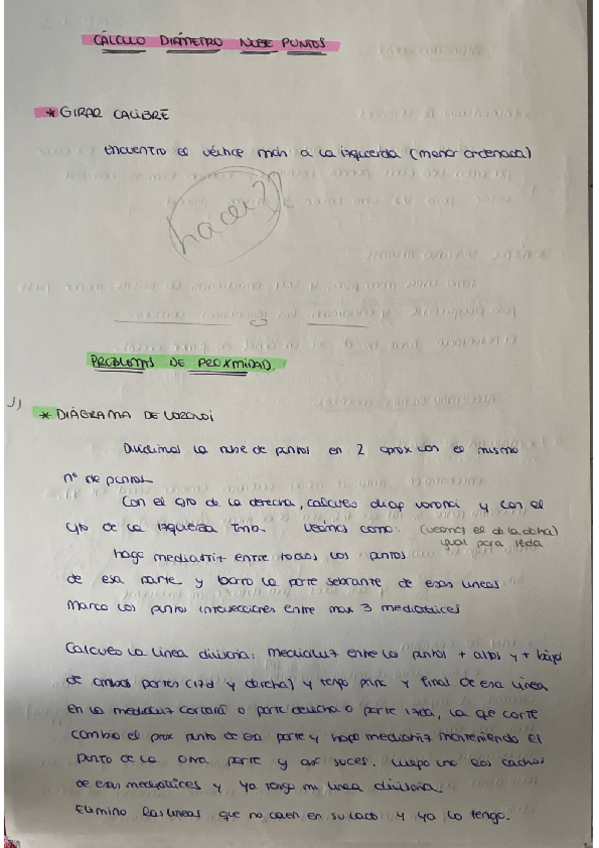 CÁLCULO DIÁMETRO NUBE PUNTOS
* GIRAR CALIBRE
encuentro el vértice más a la izquierda (menor ordenada)
hacer??
PROBLEMAS DE PROXIMIDAD.
1)
* DIAGRAMA DE VORONOI
Dividimos la nube de puntos en 2 aprox con el mismo
nº de puntos
Con el cjto de la derecha, calculo diag voronoi y con el
cjto de la izquierda tmb. Veamos como: (veamos el de la dcha)
igual para izda
hago mediatriz entre todos los puntos
de esa parte y borro la parte sobrante de esas lineas
Marco los puntos intersecciones entre mas 3 mediatrices
Calculo la linea divisoria: mediatriz entre los puntos + altos y + bajos
de ambas partes (izd y derecha) y tengo ppio y final de esa línea
en la mediatriz cortará o parte derecha o parte izda, la que corte
cambio el prox punto de esa parte y hago mediatriz manteniendo el
punto de la otra parte y así suces. Luego uno los cachos
de esas mediatrices y ya tengo mi linea divisoria.
Elimino las lineas que no caen en su lado y ya lo tengo.